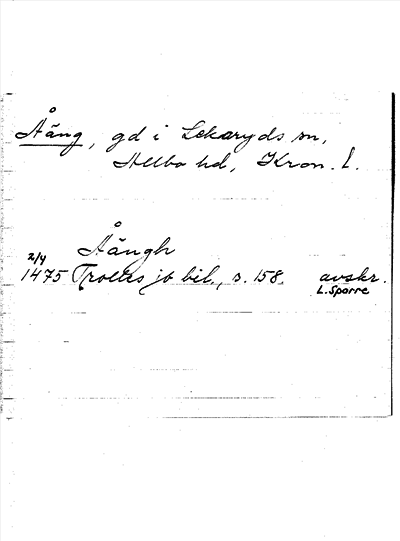 Åäng, gd i Lekaryds sn,
Allbo hd, Kron. l.
Åängh
2/4
1475 Trolles jb bil., s. 158. avskr.
L. Sporre